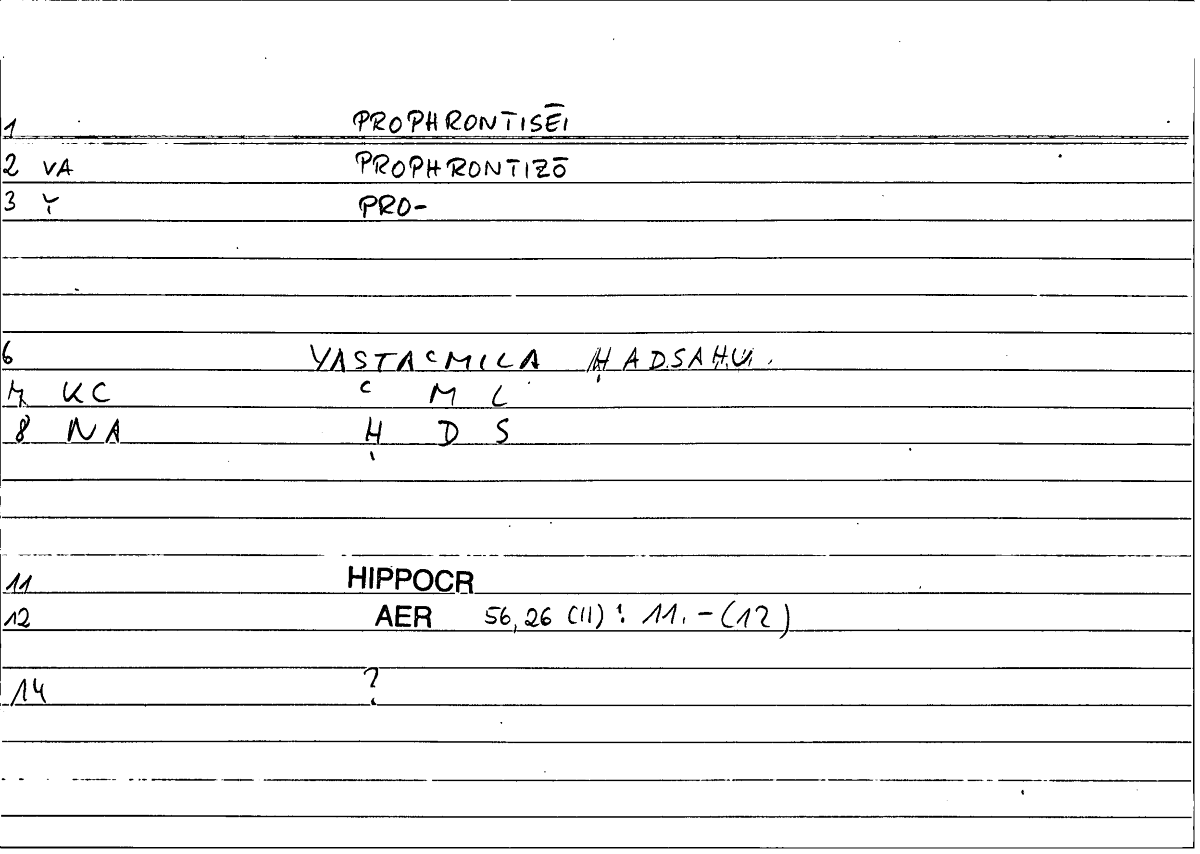 1 PROPHRONTISĒI
2 VA PROPHRONTIZŌ
3 Y PRO-
6 YASTAʿMILA ḤADSAHU.
7 KC ʿ M L
8 NA Ḥ D S
11 HIPPOCR
12 AER 56,26 (11) : 11. - (12)
14 ?